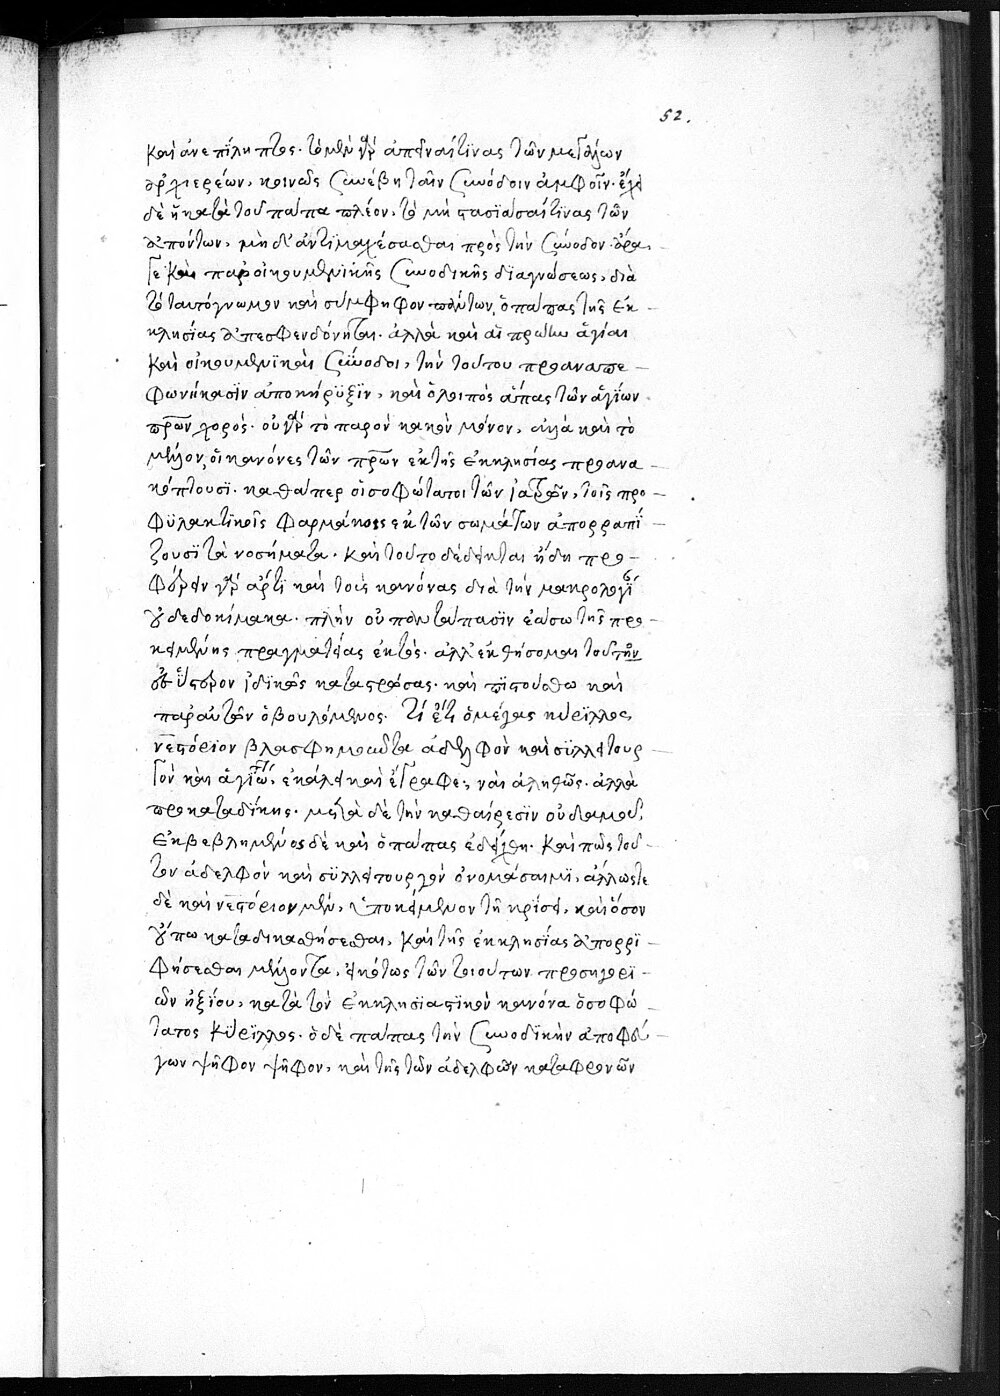 52.
καὶ ἀνεπίληπτος. τὸ μὲν γὰρ ἀπεῖναί τινας τῶν μεγάλων
ἀρχιερέων, κοινῶς συνέβη ταῖν συνόδοιν ἀμφοῖν. ἔχει
δὲ ἡ κατὰ τοῦ πάπα πλέον, τὸ μὴ στασιάσαί τινας τῶν
ἀπόντων, μὴ δ' ἀντικαλέσασθαι πρὸς τὴν σύνοδον. ὁρᾶς
γε καὶ παρ' οἰκουμενικῆς συνοδικῆς διαγνώσεως, διὰ
τὸ ταυτόγνωμον καὶ σύμψηφον πάντων, ὁ πάπας τῆς ἐκ-
κλησίας ἀπεσφενδόνηται. ἀλλὰ καὶ αἱ πρώην ἅγιαι
καὶ οἰκουμενικαὶ σύνοδοι, τὴν τούτου προαναπε-
φωνήκασιν ἀποκήρυξιν, καὶ ὁ λοιπὸς ἅπας τῶν ἁγίων
πρων χορός. οὐ γὰρ τὸ παρὸν κακὸν μόνον, ἀλλὰ καὶ τὸ
μέλλον, οἱ κανόνες τῶν πρων ἐκ τῆς ἐκκλησίας προανα-
κόπτουσι. καθάπερ οἱ σοφώτατοι τῶν ἰατρῶν, τοῖς προ-
φυλακτικοῖς φαρμάκοις ἐκ τῶν σωμάτων ἀπορραπί-
ζουσι τὰ νοσήματα. καὶ τοῦτο δέδεικται ἤδη προ-
φέρειν γὰρ ἄρτι καὶ τοὺς κανόνας διὰ τὴν μακρολογί
οὐ δεδοκίμακα. πλὴν οὐ παντάπασιν ἐάσω τῆς προ-
κειμένης πραγματείας ἐκτός. ἀλλ' ἐκθήσομαι τούτων
ἐς ὕστερον ἰδικῶς καταστρώσας. καὶ πιστούσθω καὶ
παρ' αὐτῶν ὁ βουλόμενος. Τί ἔτι ὁ μέγας κύριλλος
νεστόριον βλασφημοῦντα ἀδελφὸν καὶ συλλειτουρ-
γὸν καὶ ἁγιώ, ἐκάλει καὶ ἔγραφε, ναὶ ἀληθῶς. ἀλλὰ
πρὸ καταδίκης. μετὰ δὲ τὴν καθαίρεσιν οὐδαμοῦ.
ἐκβεβλημένος δὲ καὶ ὁ πάπας ἐδείχθη. καὶ πῶς τοῦ-
τον ἀδελφὸν καὶ συλλειτουργὸν ὀνομάσαιμι, ἄλλωστε
δὲ καὶ νεστόριον μὲν, ὑποκείμενον τῇ κρίσει, καὶ ὅσον
οὔπω καταδικασθήσεσθαι, καὶ τῆς ἐκκλησίας ἀπορρι-
φήσεσθαι μέλλοντα, εἰκότως τῶν τοιούτων προσηγορι-
ῶν ἠξίου, κατὰ τὸν ἐκκλησιαστικὸν κανόνα ὁ σοφώ-
τατος κύριλλος. ὁ δὲ πάπας τὴν συνοδικὴν ἀποφεύ-
γων ψῆφον ψῆφον, καὶ τῆς τῶν ἀδελφῶν καταφρονῶν